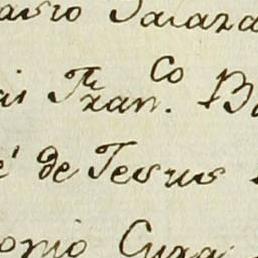 asio Salaza
ai Fran.co Ba
é de Jesus
onio Cura